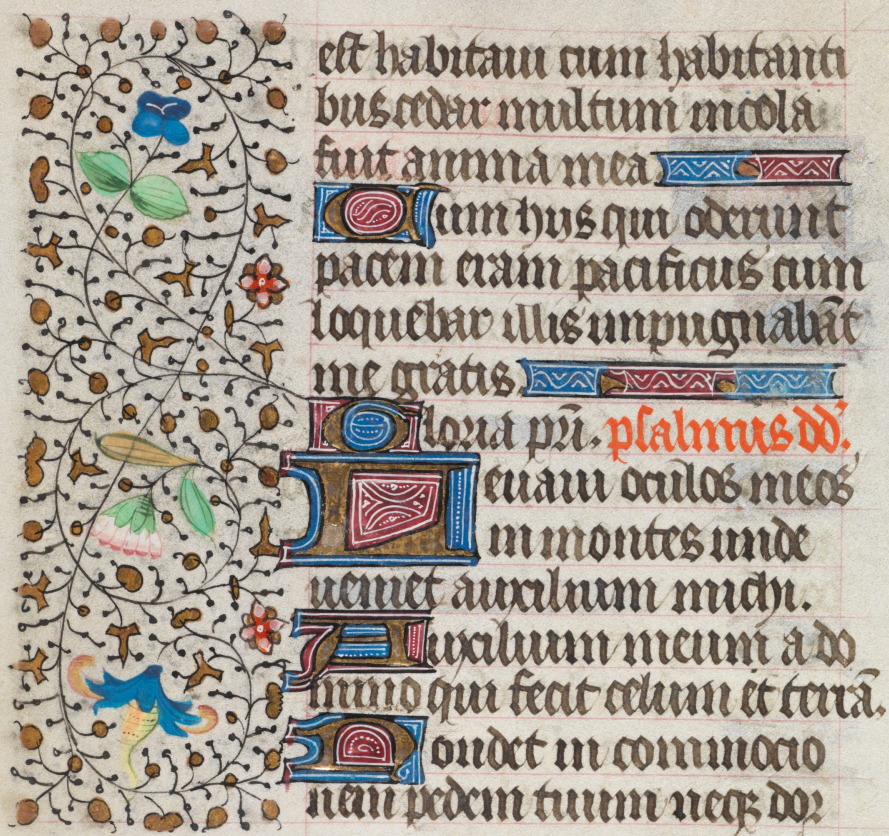 est habitaui cum habitanti
bus cedar multum incola
fuit anima mea
Cum hijs qui oderunt
pacem eram pacificus cum
loquebar illis inpugnabāt
me gratis
Gloria pr̄i. psalmus dd̄.
Leuaui oculos meos
in montes unde
ueniet auxilium michi.
Auxilium meum a do
mino qui fecit celum et terrā.
Non det in commocio
nem pedem tuum neqꝫ dor